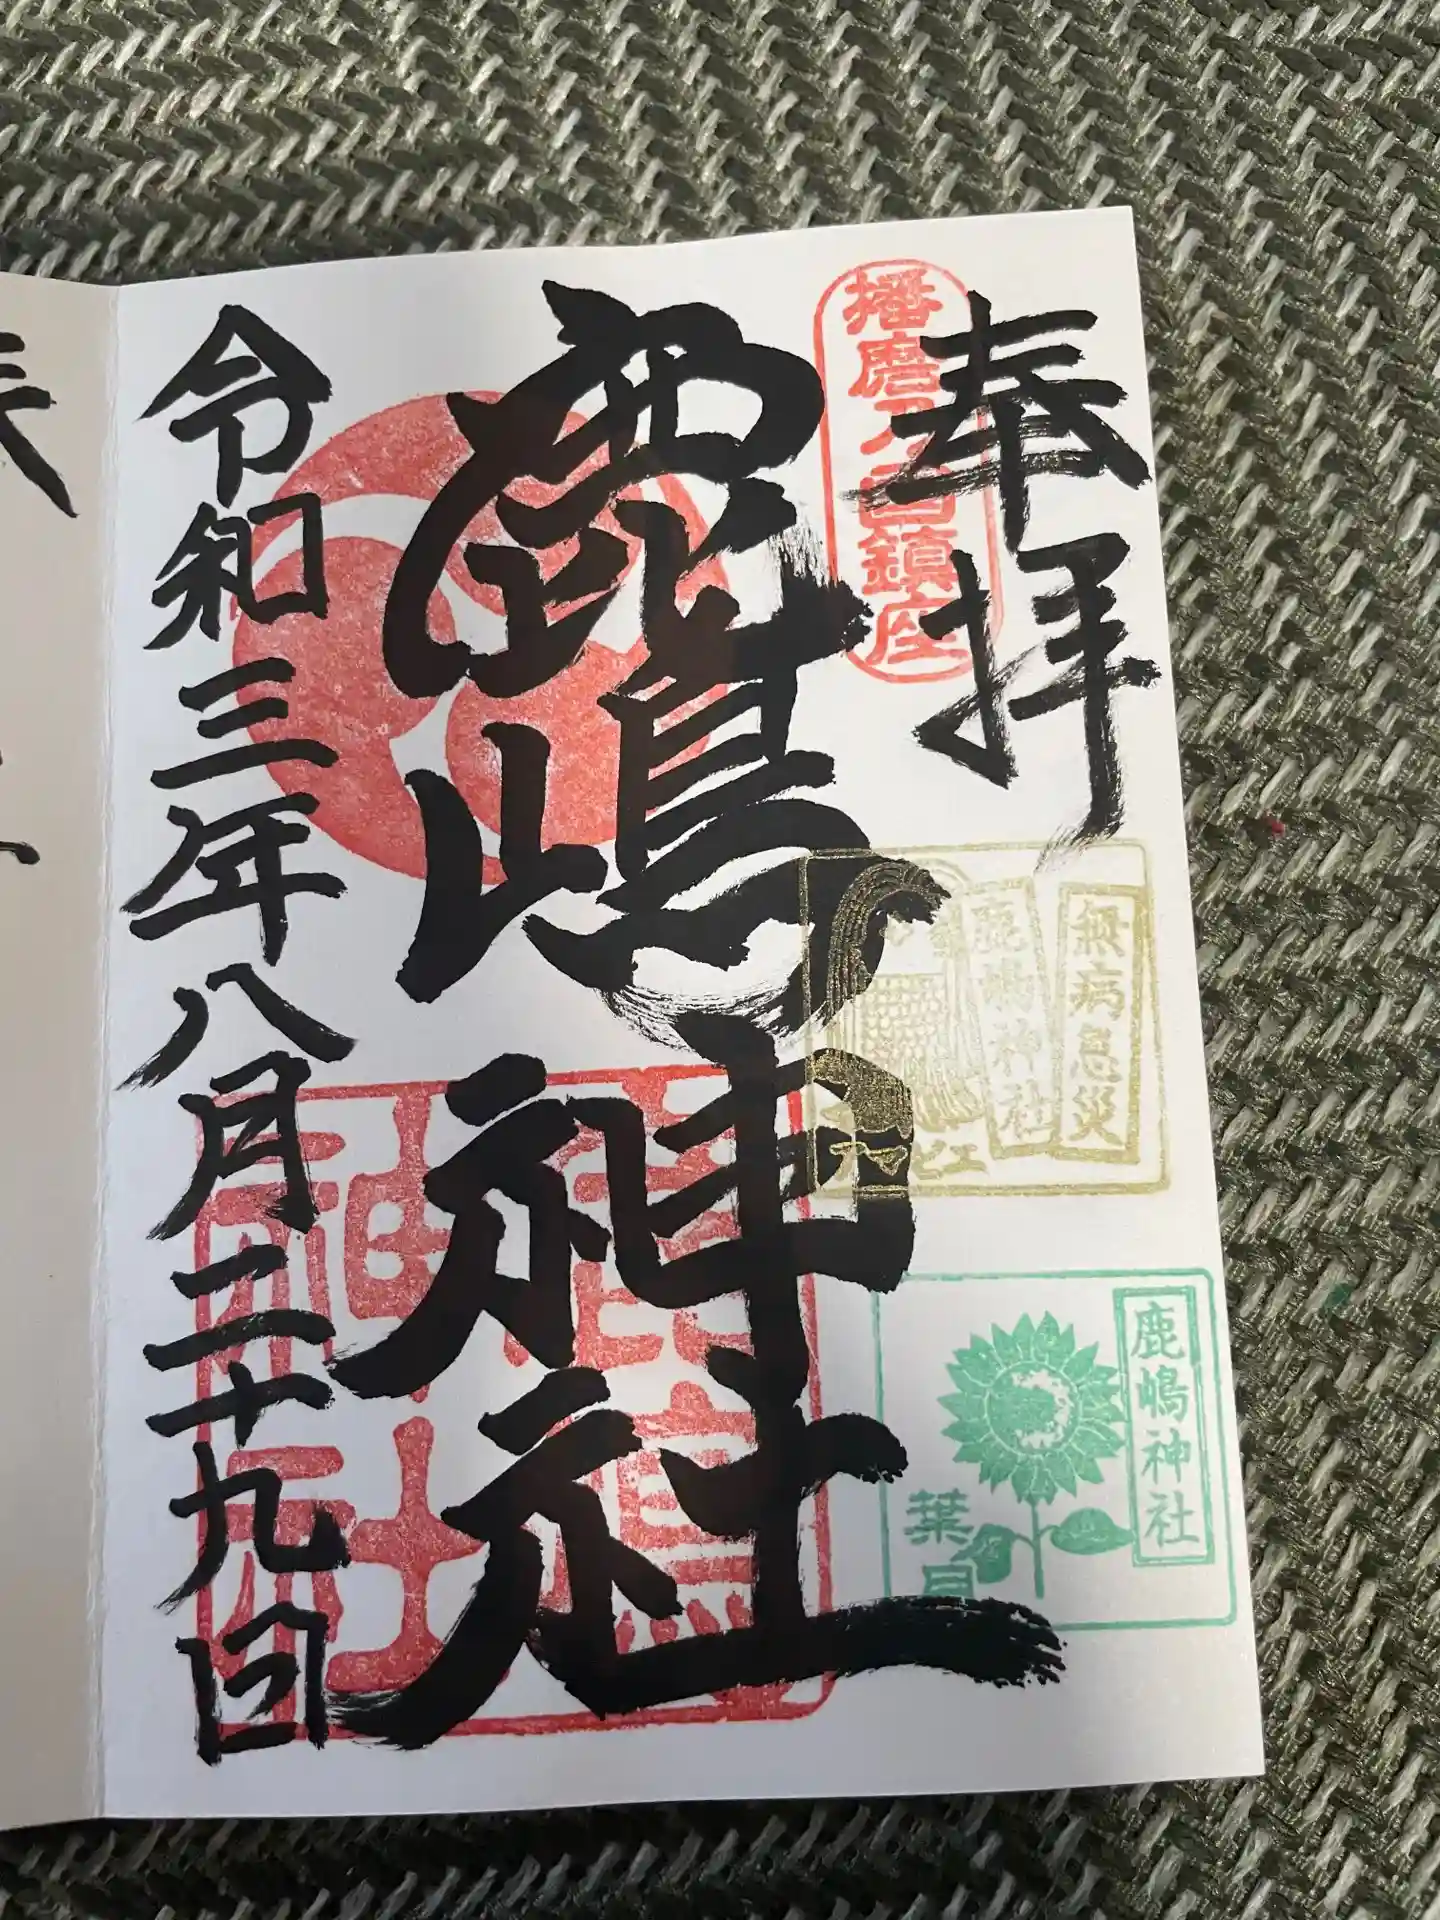 奉拝
播磨乃国鎮座
鹿嶋神社
無病息災
鹿嶋神社
アマビエ
鹿嶋神社
葉月
令和三年八月二十九日